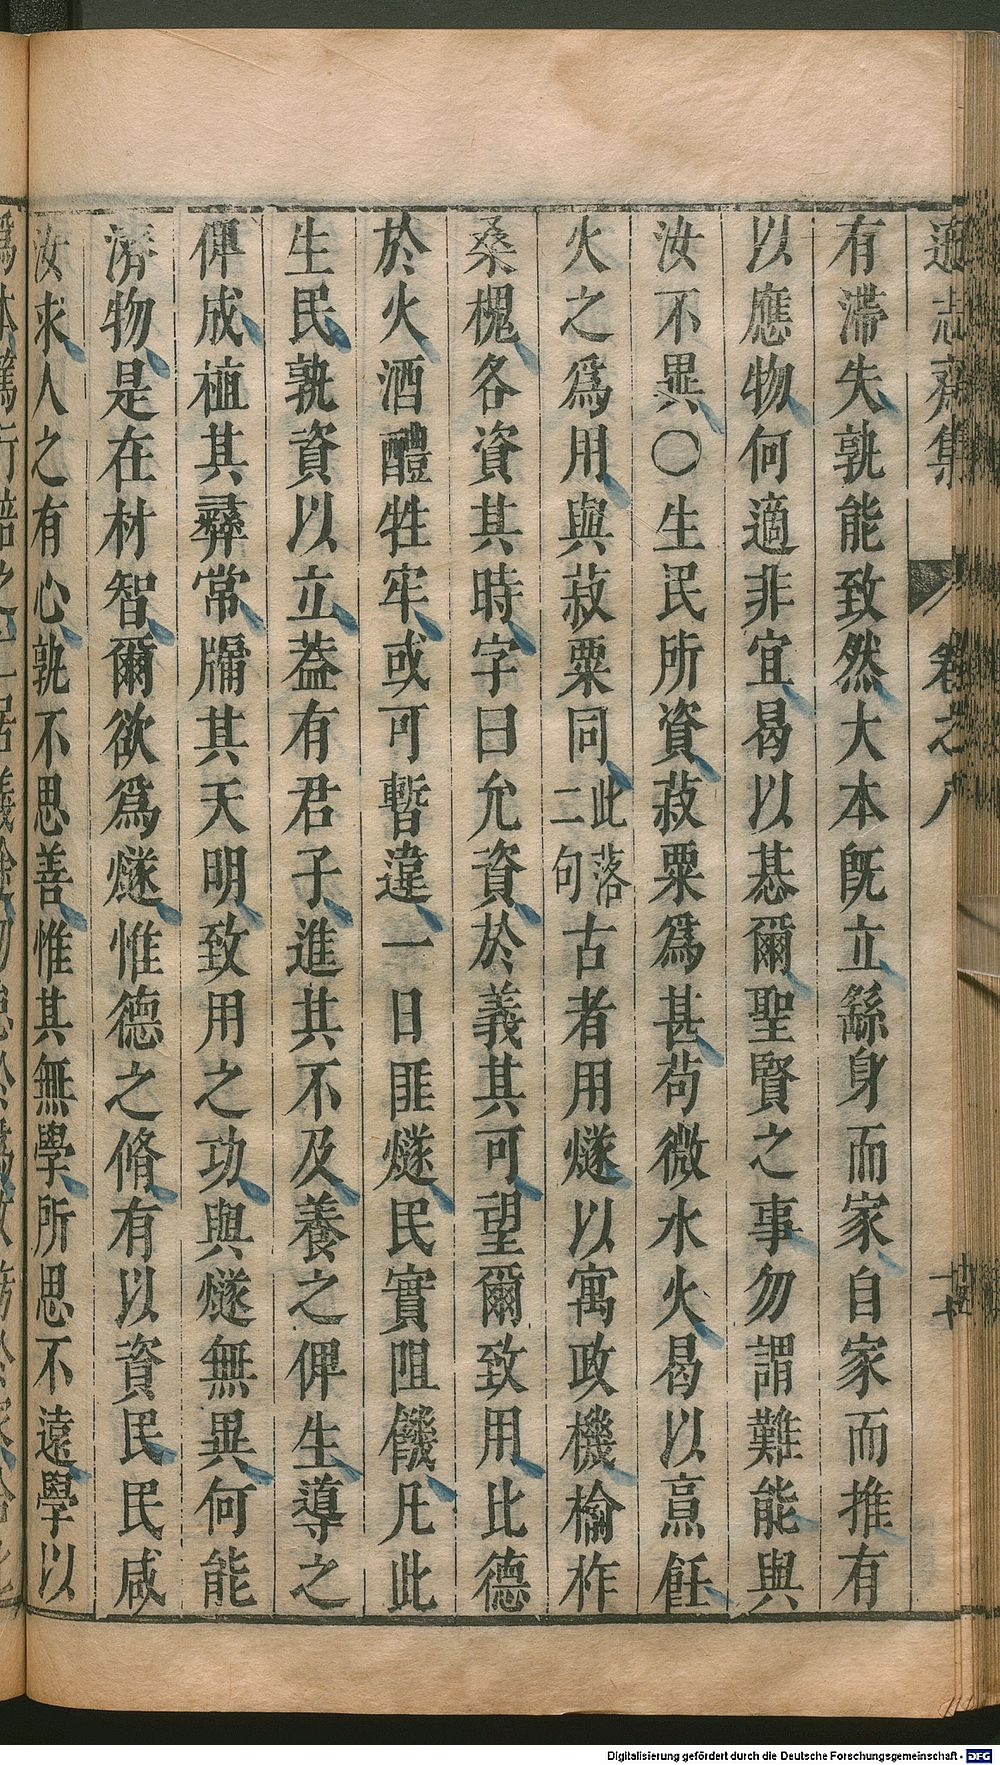 遜志齋集 卷之八 十
有滯失孰能致然大本旣立繇身而家自家而推有
以應物何適非宜曷以惎爾聖賢之事勿謂難能與
汝不異〇生民所資菽粟爲甚茍微水火曷以亯飪
火之爲用與菽粟同此落二句古者用燧以寓政機榆柞
桑槐各資其時字曰允資於義其可望爾致用比德
於火酒醴牲牢或可暫違一日匪燧民實阻饑凡此
生民孰資以立葢有君子進其不及養之俾生導之
俾成植其彞常牖其天明致用之功與燧無異何能
濟物是在材智爾欲爲燧惟德之脩有以資民民咸
汝求人之有心孰不思善惟其無學所思不遠學以
Digitalisierung gefördert durch die Deutsche Forschungsgemeinschaft - DFG